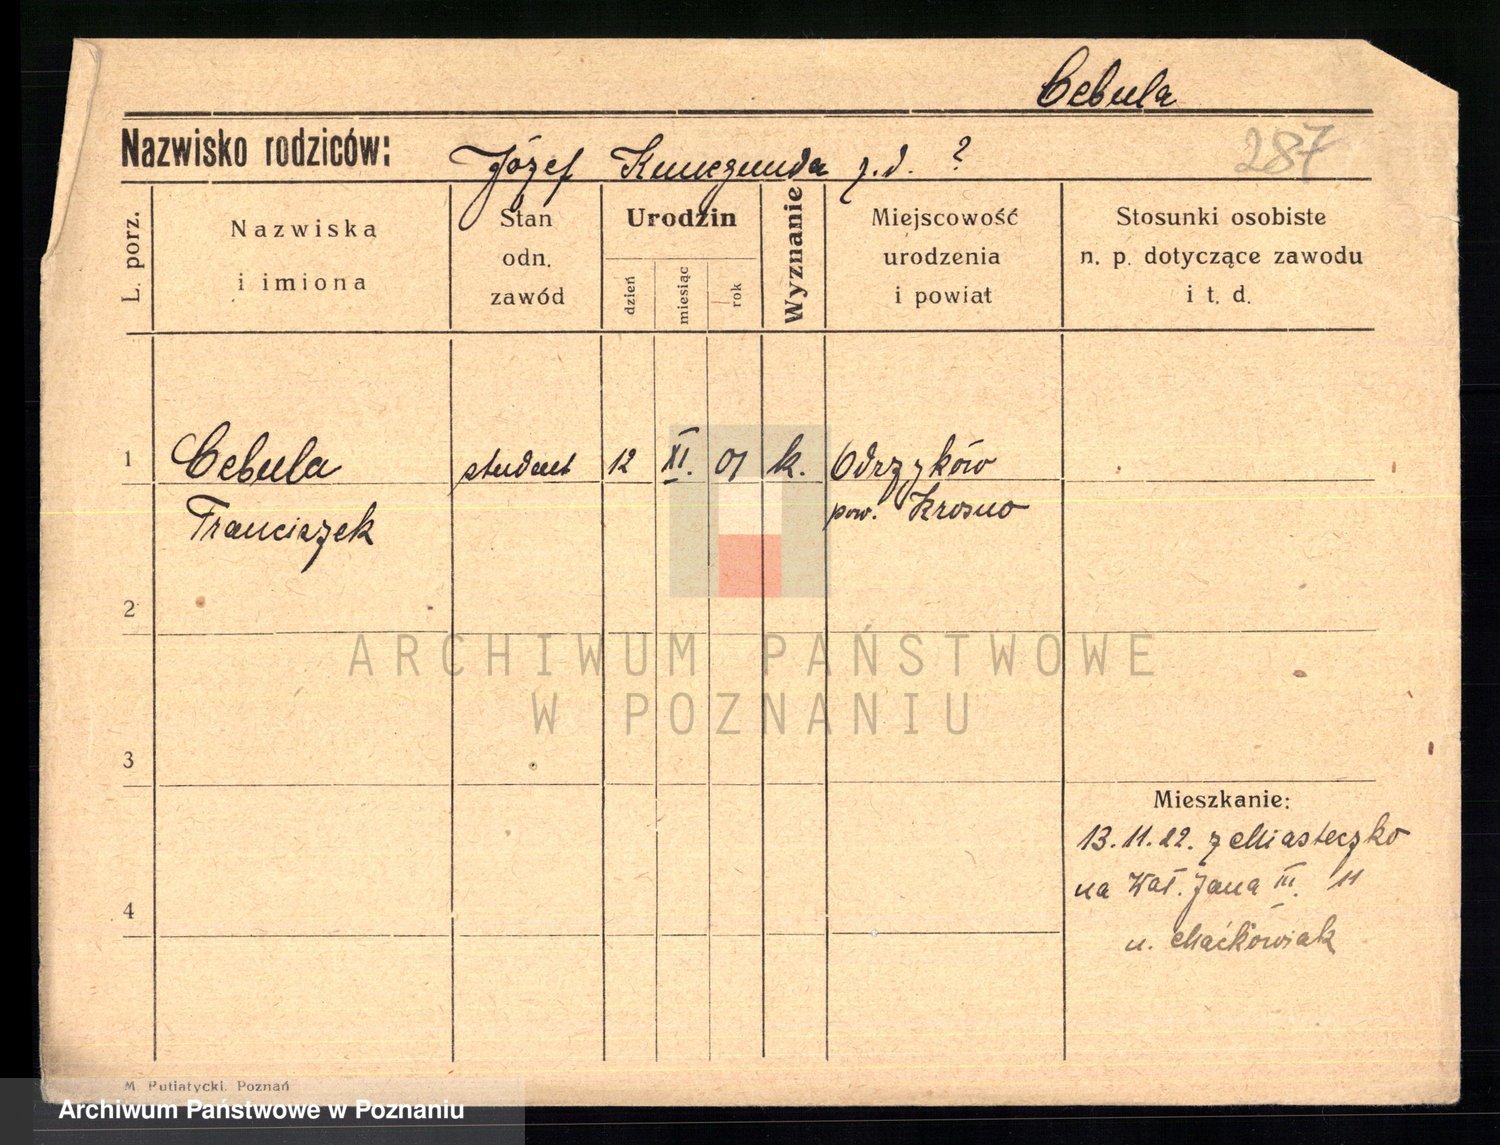 Cebula
Nazwisko rodziców:
Józef Kunegunda z.d. ?
287
L. porz.
Nazwiska
i imiona
Stan
odn.
zawód
Urodzin
dzień
miesiąc
rok
Wyznanie
Miejscowość
urodzenia
i powiat
Stosunki osobiste
n. p. dotyczące zawodu
i t. d.
1
Cebula
Franciszek
student
12
XI.
01
k.
Odrzyków
pow. Krosno
2
3
4
Mieszkanie:
13.11.22. z Miasteczko
na Wał. Jana III. 11
u. Maćkowiak
ARCHIWUM PAŃSTWOWE
W POZNANIU
M. Putiatycki, Poznań
Archiwum Państwowe w Poznaniu